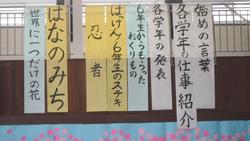 始めの言葉
各学年の仕事紹介
各学年の発表
6年生からもらった
おくりもの
はっけん!6年生のステキ
忍者
はなのみち
世界に一つだけの花